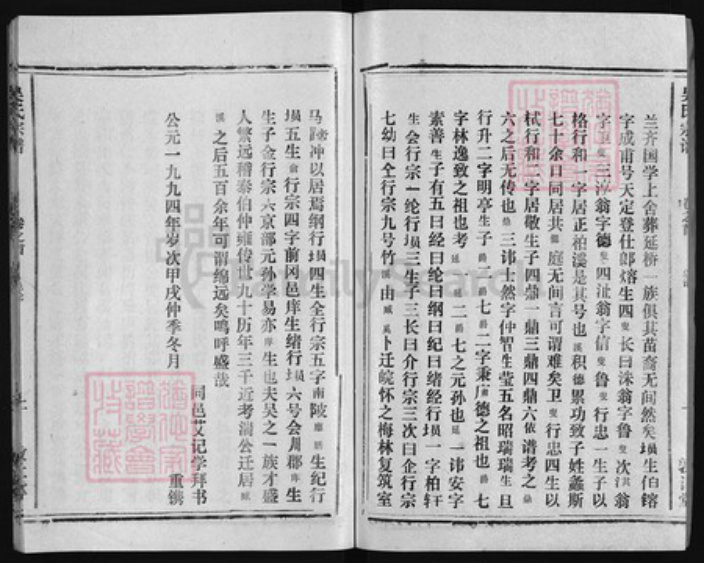 兰齐国学上舍葬延桥一族俱其苗裔无间然矣埙生伯镕
字成甫号天定登仕郎熔生四叟长曰洙翁字鲁叟次其翁
字卫叟三汶翁字德叟四沚翁字信叟鲁叟行忠一生子以
格行和一字居正柏溪是其号也溪积德累功致子姓螽斯
七十余口同居共庭无间言可谓难矣卫叟行忠四生以
栻行和三字居敬生子四鼎一鼎三鼎四鼎六依谱考之
六之后无传也三讳士然字仲智生莹五名昭瑞瑞生且
行升二字明亭生子爵二爵七爵二字秉庸德之祖也爵七
字林逸致之祖也考廷二爵七之元孙也廷一讳安字
素善生子有五曰经曰纶曰纲曰纪曰绪经行埙一字柏轩
生会行宗一纶行埙三生子三长曰介行宗三次曰企行宗
七幼曰仝行宗九号竹溪由臧溪卜迁皖怀之梅林复筑室
马冲以居焉纲行埙四生全行宗五字南陂生纪行
埙五生行宗四字前冈邑庠生绪行埙六号会川郡庠生
生子金行宗六京部元孙学易亦庠生也夫吴之一族才盛
人繁远稽泰伯仲雍传世九十历年三千近考满公迁居臧
溪之后五百余年可谓绵远矣呜呼盛哉
同邑艾记学拜书
公元一九九四年岁次甲戌仲季冬月
重镌